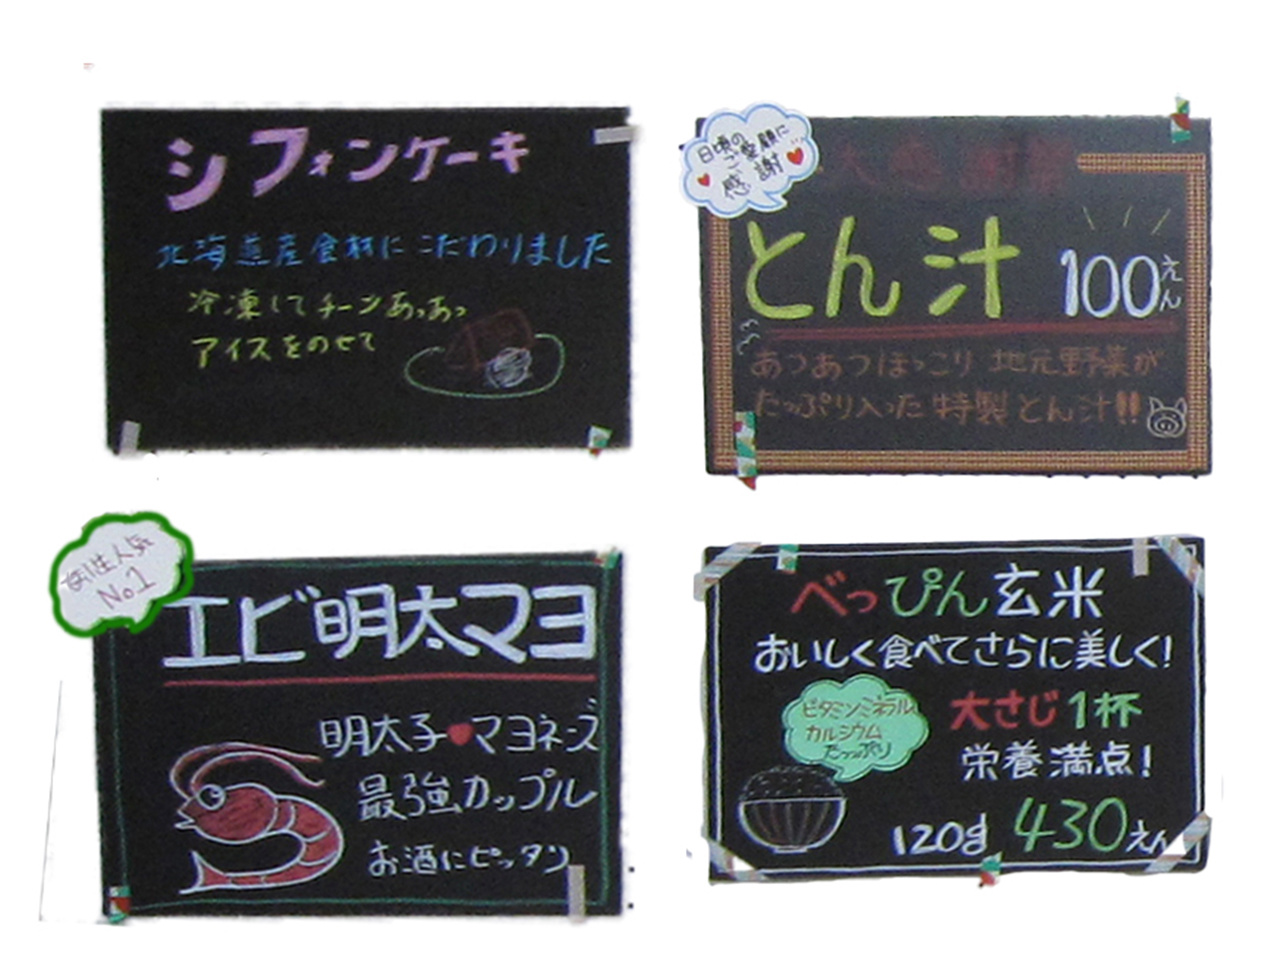 シフォンケーキ
北海道産食材にこだわりました
冷凍してチーンあっあっ
アイスをのせて
日頃の
ご愛顧に
感謝
大感謝
とん汁 100えん
あつあつほっこり 地元野菜が
たっぷり入った特製とん汁!!
女性人気
No.1
エビ明太マヨ
明太子♥マヨネーズ
最強カップル
お酒にピッタリ
べっぴん玄米
おいしく食べてさらに美しく!
ビタミンミネラル
カルシウム
たっぷり
大さじ1杯
栄養満点!
120g 430えん